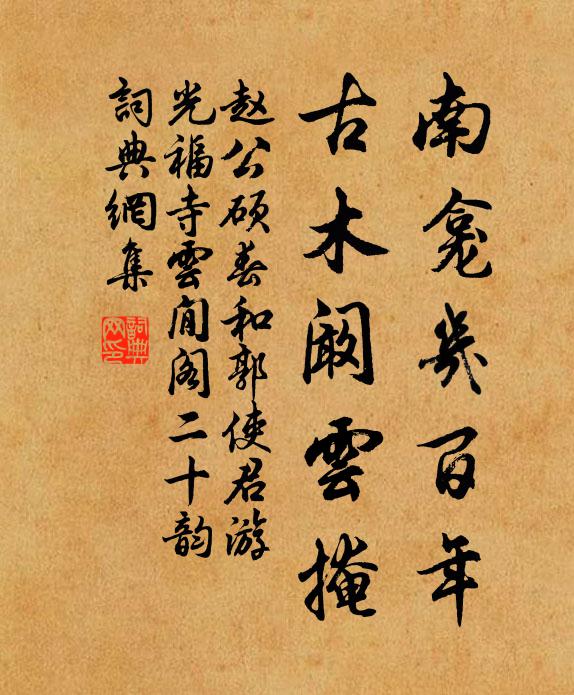 南龛岌百年
古木阚雲掩
赵公硕春和郭使君游
光福寺雲閒阁二十韵
詞典網集
詞典网印